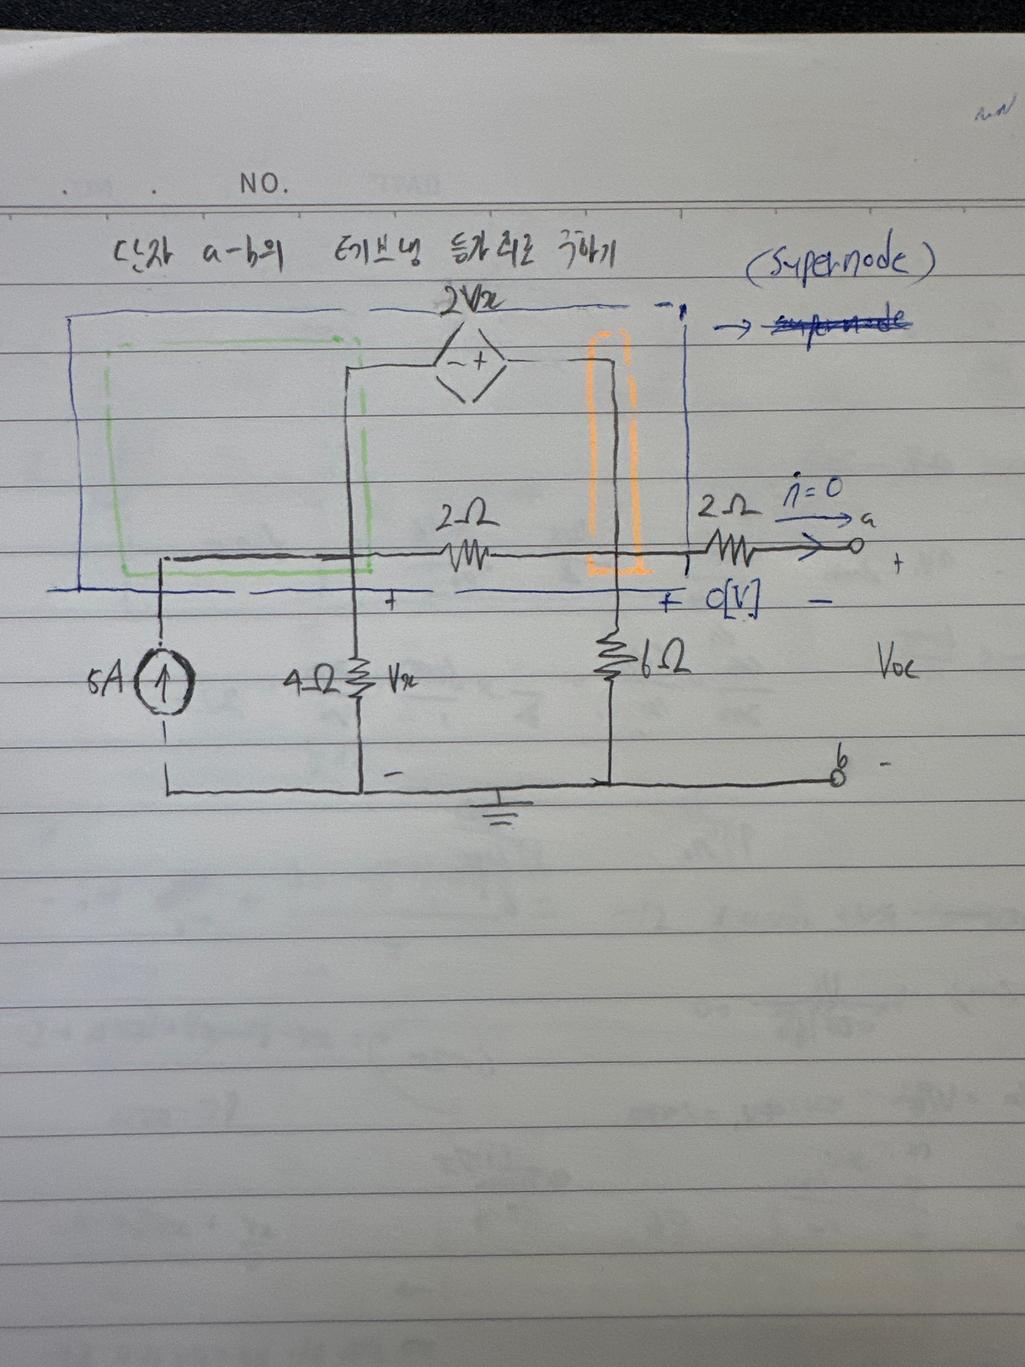 NO.
단자 a-b의 테브냉 등가 회로 구하기
(Supernode)
→ supernode
2Vx
- +
2Ω
2Ω
i=0
a
+
+
+ 0[V] -
5A
4Ω
Vx
6Ω
Voc
-
b
-